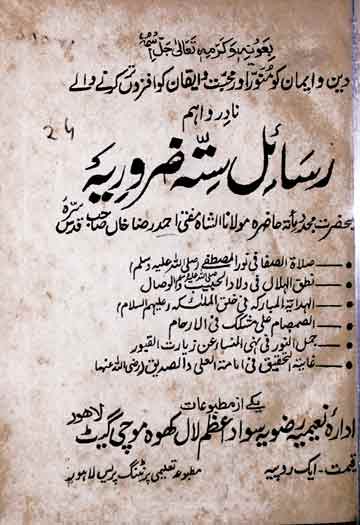 بعونہ وکرمہ تعالیٰ جل اسمہٗ
دین و ایمان کو منور اور محبت و ایقان کو افزوں تر کرنے والے
نادر و اہم
24
رسائل ستہ ضروریہ
حضرت مجدد مأتہ حاضرہ مولانا الشاہ مفتی احمد رضا خاں صاحب قدس سرہ
صلاۃ الصفا فی نور المصطفےٰ (صلی اللہ علیہ وسلم)
نطق الہلال فی ولاد الحبیب صلی اللہ علیہ وسلم والوصال
الہدایۃ المبارکہ فی خلق الملٰئکہ (علیہم السلام)
الصمصام علی مشکک فی الارحام
جمل النور فی نہی النساء عن زیارت القبور
غایۃ التحقیق فی امامۃ العلی والصدیق (رضی اللہ عنہما)
یکے از مطبوعات
ادارۂ نعیمیہ رضویہ سواد اعظم لال کھوہ موچی گیٹ لاہور
قیمت - ایک روپیہ
مطبوعہ تعلیمی پرنٹنگ پریس لاہور